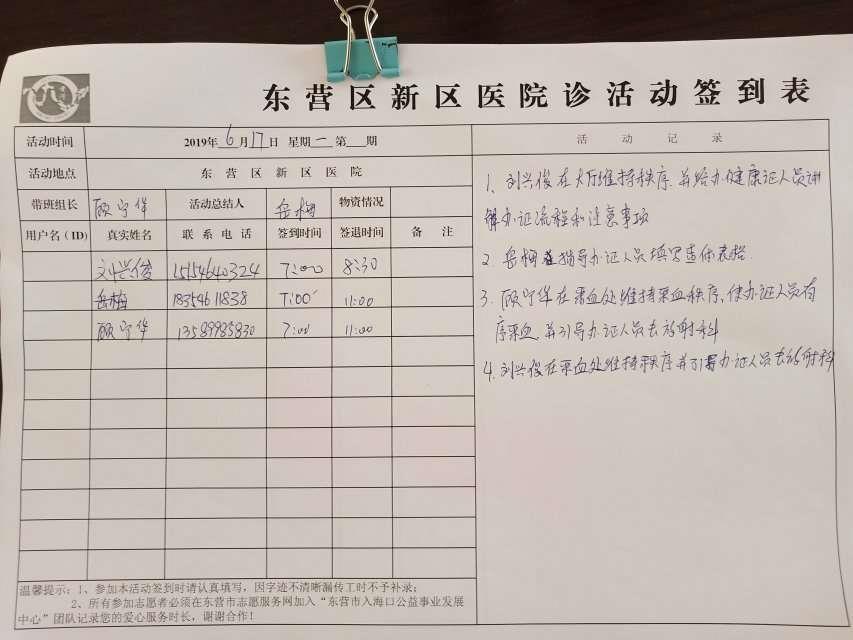 东营区新区医院诊活动签到表
活动时间 2019年6月17日 星期一 第 期 活动记录
活动地点 东营区新区医院
带班组长 顾宁华 活动总结人 岳梅 物资情况
用户名(ID) 真实姓名 联系电话 签到时间 签退时间 备注
刘兴俊 15154640324 7:00 8:30
岳梅 18354611838 7:00 11:00
顾宁华 13589985830 7:00 11:00
1、刘兴俊在大厅维持秩序,并给办健康证人员讲
解办证流程和注意事项
2、岳梅在指导办证人员填写查体表格.
3、顾宁华在采血处维持采血秩序,使办证人员有
序采血,并引导办证人员去放射科
4、刘兴俊在采血处维持秩序并引导办证人员去放射科
温馨提示:1、参加本活动签到时请认真填写,因字迹不清晰漏传工时不予补录;
2、所有参加志愿者必须在东营市志愿服务网加入“东营市入海口公益事业发展
中心”团队记录您的爱心服务时长,谢谢合作!